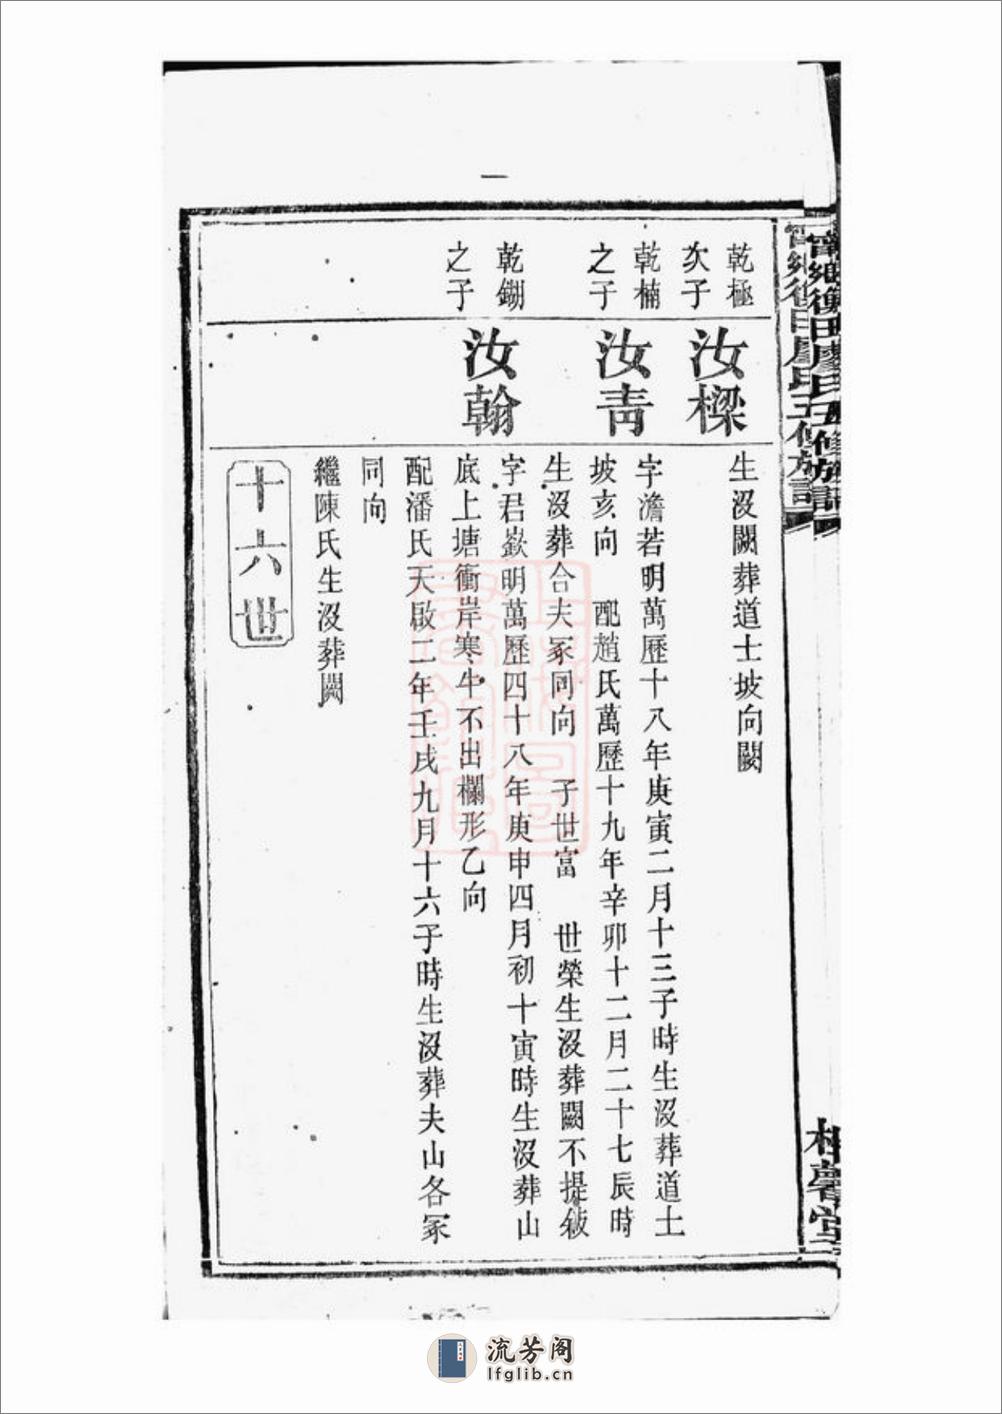 一
甯鄉衡田廖氏五修族記
乾極
次子
汝樑
生沒闕葬道士坡向闕
乾楠
之子
汝靑
字澹若明萬歷十八年庚寅二月十三子時生沒葬道士
坡亥向 配趙氏萬歷十九年辛卯十二月二十七辰時
生沒葬合夫冢同向 子世富 世榮生沒葬闕不提敍
乾鎙
之子
汝翰
字君嶽明萬歷四十八年庚申四月初十寅時生沒葬山
底上塘衝岸寒牛不出欄形乙向
配潘氏天啟二年壬戌九月十六子時生沒葬夫山各冢
同向
繼陳氏生沒葬闕
十六世
流芳阁
lfglib.cn